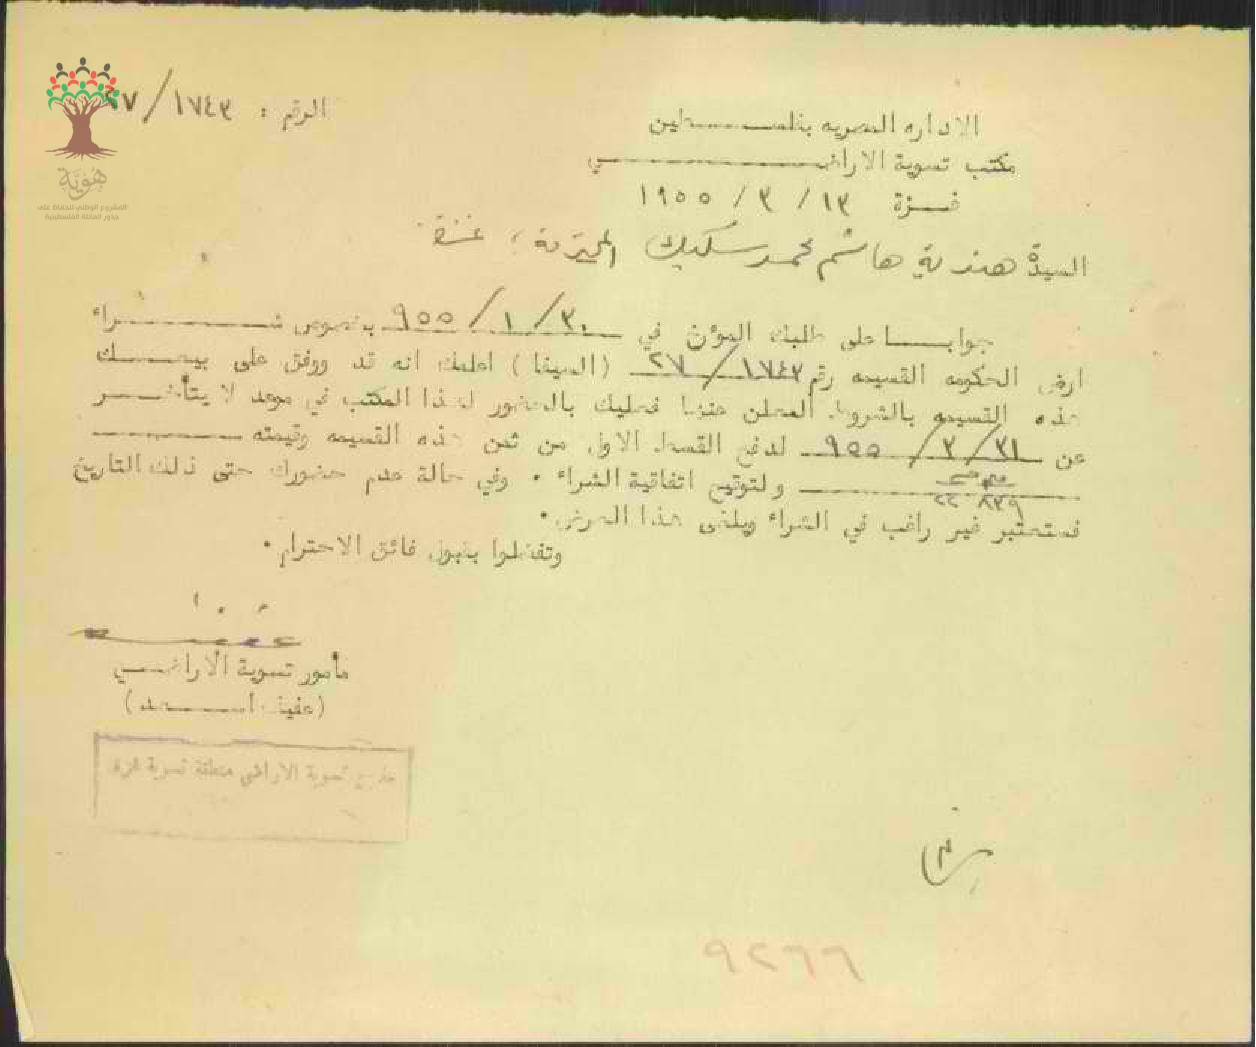 الرقم : ١٧٤٣/٢٧
الاداره المصريه بفلسطين
مكتب تسوية الاراضي
غزة ١٣ / ٣ / ١٩٥٥
السيدة هندية هاشم محمد سكيك المحترمة ، غزة
جوابا على طلبك المؤرخ في ٣٠/١/٩٥٥ بخصوص شراء
ارض الحكومه القسيمه رقم ١٧٤٣/٢٧ (السيفا) اعلمك انه قد ووفق على بيعك
هذه القسيمه بالشروط المعلن عنها فعليك بالحضور لهذا المكتب في موعد لا يتأخر
عن ٣١/٣/٩٥٥ لدفع القسط الاول من ثمن هذه القسيمه وقيمته
٨٣٩ ٢٢ ولتوقيع اتفاقية الشراء . وفي حالة عدم حضورك حتى ذلك التاريخ
فستعتبر غير راغب في الشراء ويلغى هذا العرض.
وتفضلوا بقبول فائق الاحترام .
مأمور تسوية الأراضي
(عفيف أسعد)
تسوية الاراضي منطقة تسوية غزة
٩٢٦٦
هوية
المشروع الوطني للحفاظ على
جذور العائلة الفلسطينية